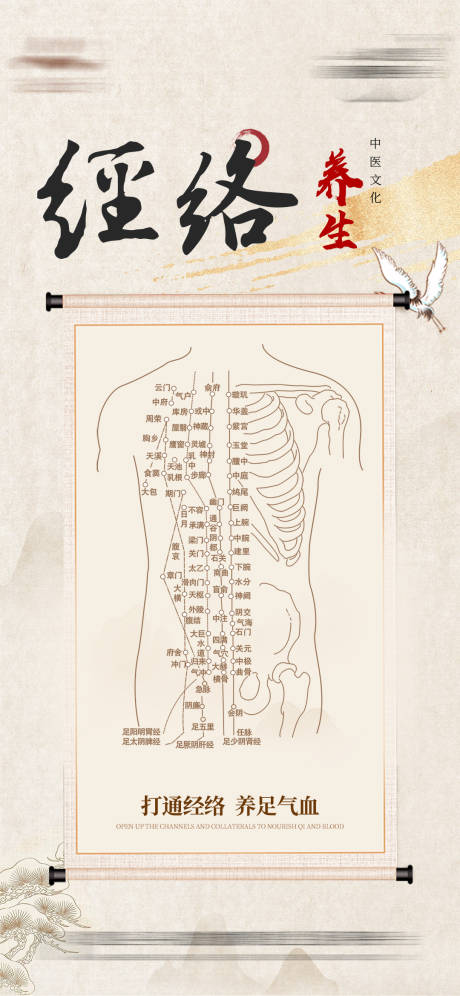 經络
养生
中医文化
云门
气户
俞府
璇玑
中府
库房
或中
华盖
周荣
屋翳
神藏
紫宫
胸乡
膺窗
灵墟
玉堂
天溪
天池
乳中
神封
膻中
食窦
乳根
步廊
中庭
大包
期门
鸠尾
幽门
巨阙
日月
不容
通谷
上脘
承满
腹哀
梁门
阴都
中脘
关门
石关
建里
章门
太乙
商曲
下脘
大横
滑肉门
肓俞
水分
天枢
神阙
外陵
阴交
腹结
中注
气海
大巨
四满
石门
水道
府舍
气穴
关元
冲门
归来
大赫
中极
气冲
横骨
曲骨
急脉
阴廉
会阴
足五里
足阳明胃经
任脉
足太阴脾经
足厥阴肝经
足少阴肾经
打通经络 养足气血
OPEN UP THE CHANNELS AND COLLATERALS TO NOURISH QI AND BLOOD